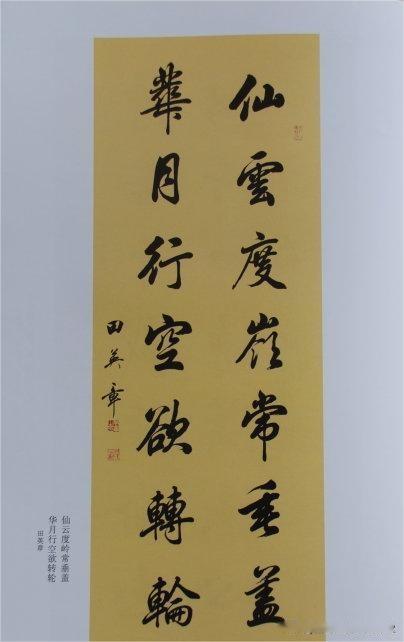 仙雲度嶺常垂蓋
華月行空欲轉輪
田英章
仙云度岭常垂盖
华月行空欲转轮
田英章